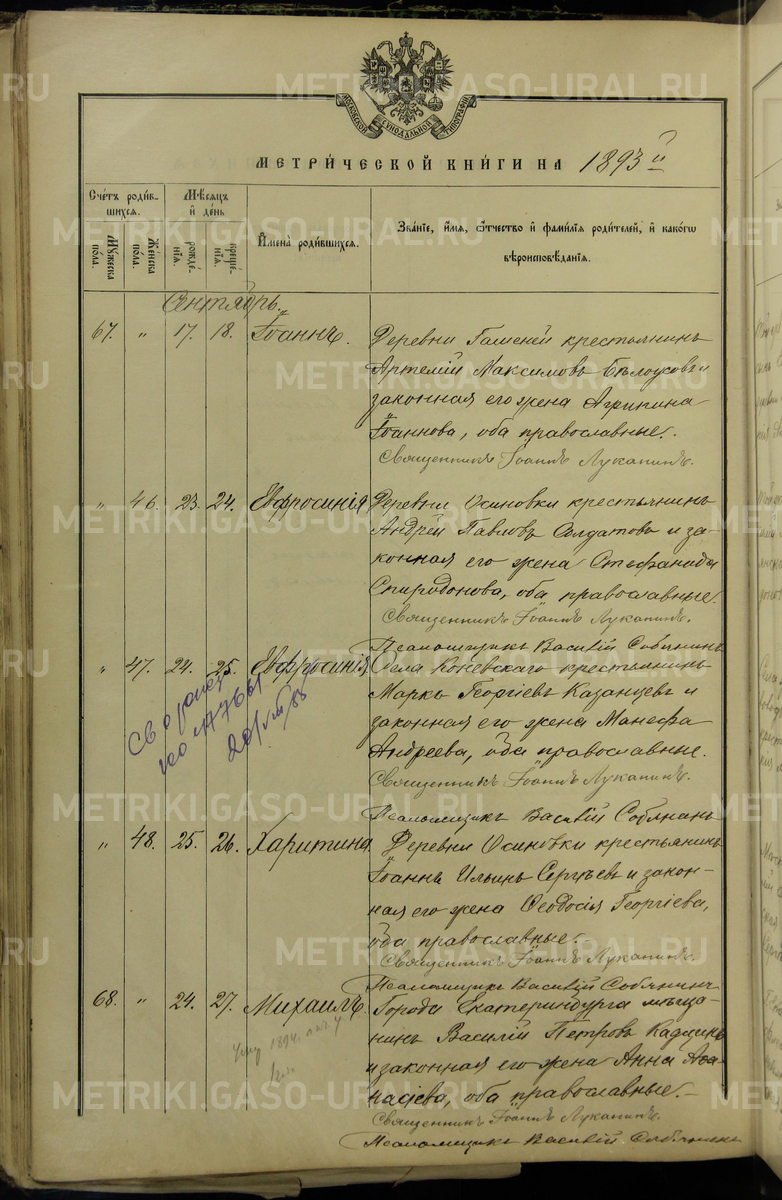 МОСКОВСКОЙ СѴНОДАЛЬНОЙ ТИПОГРАФІИ
МЕТРИ́ЧЕСКОЙ КНИ́ГИ НА 1893 й
Сче́тъ роди́в-
шихся.
Мѣ́сяцъ
и҆ де́нь
Му́жеска
по́ла.
Же́нска
по́ла.
рожде́-
нїя.
креще́-
нїя.
И҆мена̀ роди́вшихся.
Зва́нїе, и҆́мя, ѻ҆́тчество и҆ фами́лїя роди́телей, и҆ како́гѡ
вѣроисповѣ́данїя.
Сентябрь.
67. " 17. 18. Іоаннъ. Деревни Гашеней крестьянинъ
Артемій Максимовъ Бѣлоусовъ и
законная его жена Агрипина
Іоаннова, оба православные.
Священникъ Іоаннъ Луканинъ.
" 46. 23. 24. Евфросинія Деревни Осиновки крестьянинъ
Андрей Павловъ Солдатовъ и за-
конная его жена Стефанида
Спиридонова, оба православные.
Священникъ Іоаннъ Луканинъ.
Псаломщикъ Василій Собянинъ
" 47. 24. 25. Евфросинія Села Коневскаго крестьянинъ
Маркъ Георгіевъ Казанцевъ и
законная его жена Манефа
Андреева, оба православные.
Священникъ Іоаннъ Луканинъ.
Псаломщикъ Василій Собянинъ
" 48. 25. 26. Харитина Деревни Осиновки крестьянинъ
Іоаннъ Ильинъ Сергѣевъ и закон-
ная его жена Ѳеодосья Георгіева,
оба православные.
Священникъ Іоаннъ Луканинъ.
Псаломщикъ Василій Собянинъ
68. " 24. 27. Михаилъ. Города Екатеринбурга мѣща-
нинъ Василій Петровъ и законная его жена Анна Аѳа-
насіева, оба православные.
Священникъ Іоаннъ Луканинъ.
Псаломщикъ Василій Собянинъ
METRIKI.GASO-URAL.RU